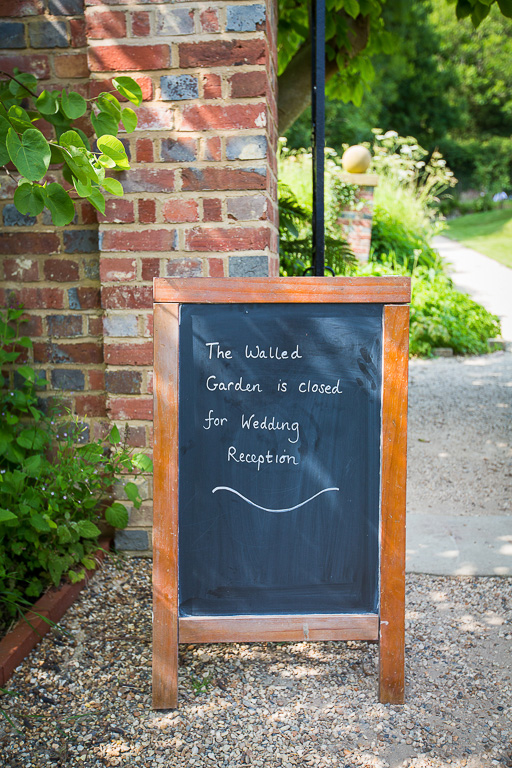 The Walled
Garden is closed
for Wedding
Reception